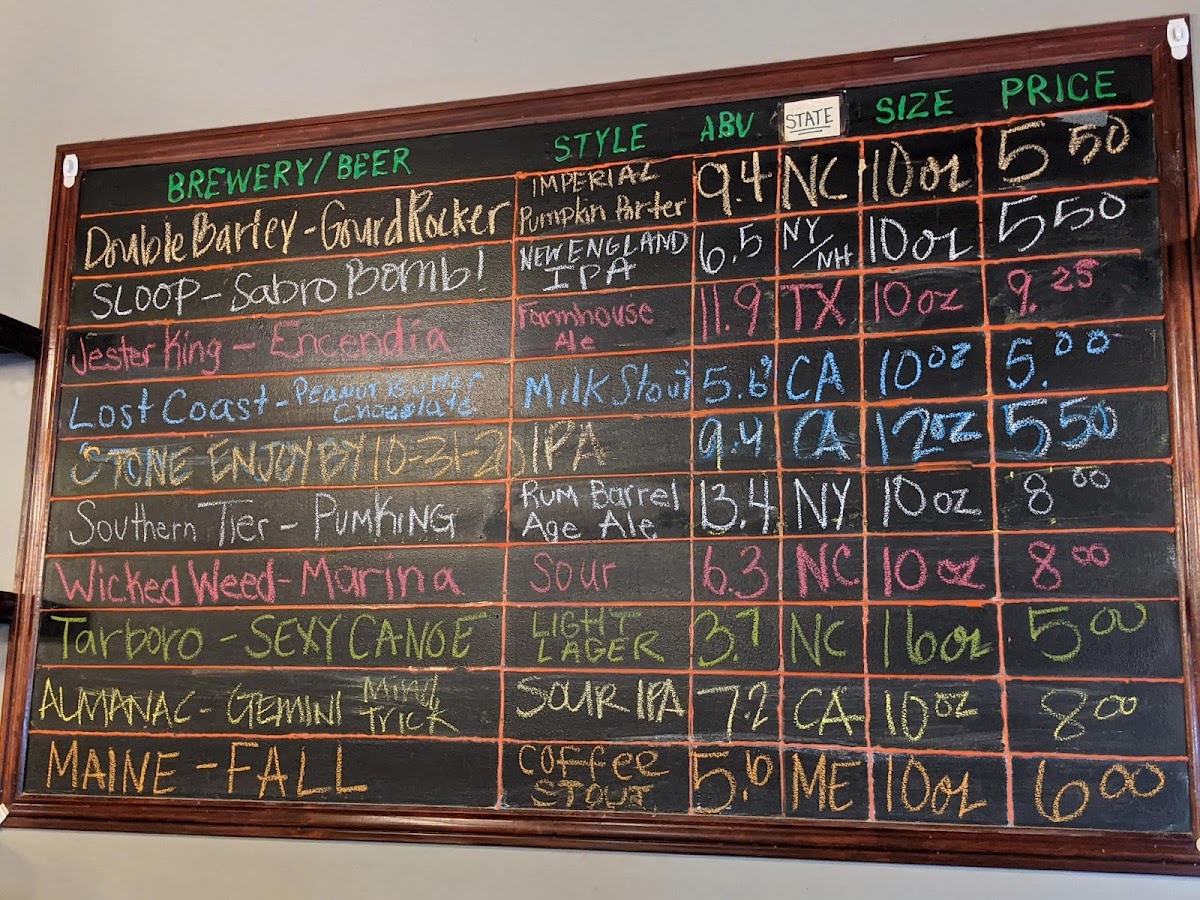 BREWERY/BEER STYLE ABV STATE SIZE PRICE
Double Barley - Gourd Rocker IMPERIAL Pumpkin Porter 9.4 NC 10oz 5 50
SLOOP - Sabro Bomb! NEW ENGLAND IPA 6.5 NY/NH 10oz 5 50
Jester King - Encendia Farmhouse Ale 11.9 TX 10oz 9.25
Lost Coast - Peanut Butter Chocolate Milk Stout 5.6 CA 10oz 5.00
STONE ENJOY BY 10-31-20 IPA 9.4 CA 12oz 5 50
Southern Tier - PUMKING Rum Barrel Age Ale 13.4 NY 10oz 8 00
Wicked Weed - Marina Sour 6.3 NC 10oz 8 00
Tarboro - SEXY CANOE LIGHT LAGER 3.7 NC 16oz 5 00
ALMANAC - GEMINI MIND TRICK SOUR IPA 7.2 CA 10oz 8 00
MAINE - FALL COFFEE STOUT 5.6 ME 10oz 6 00